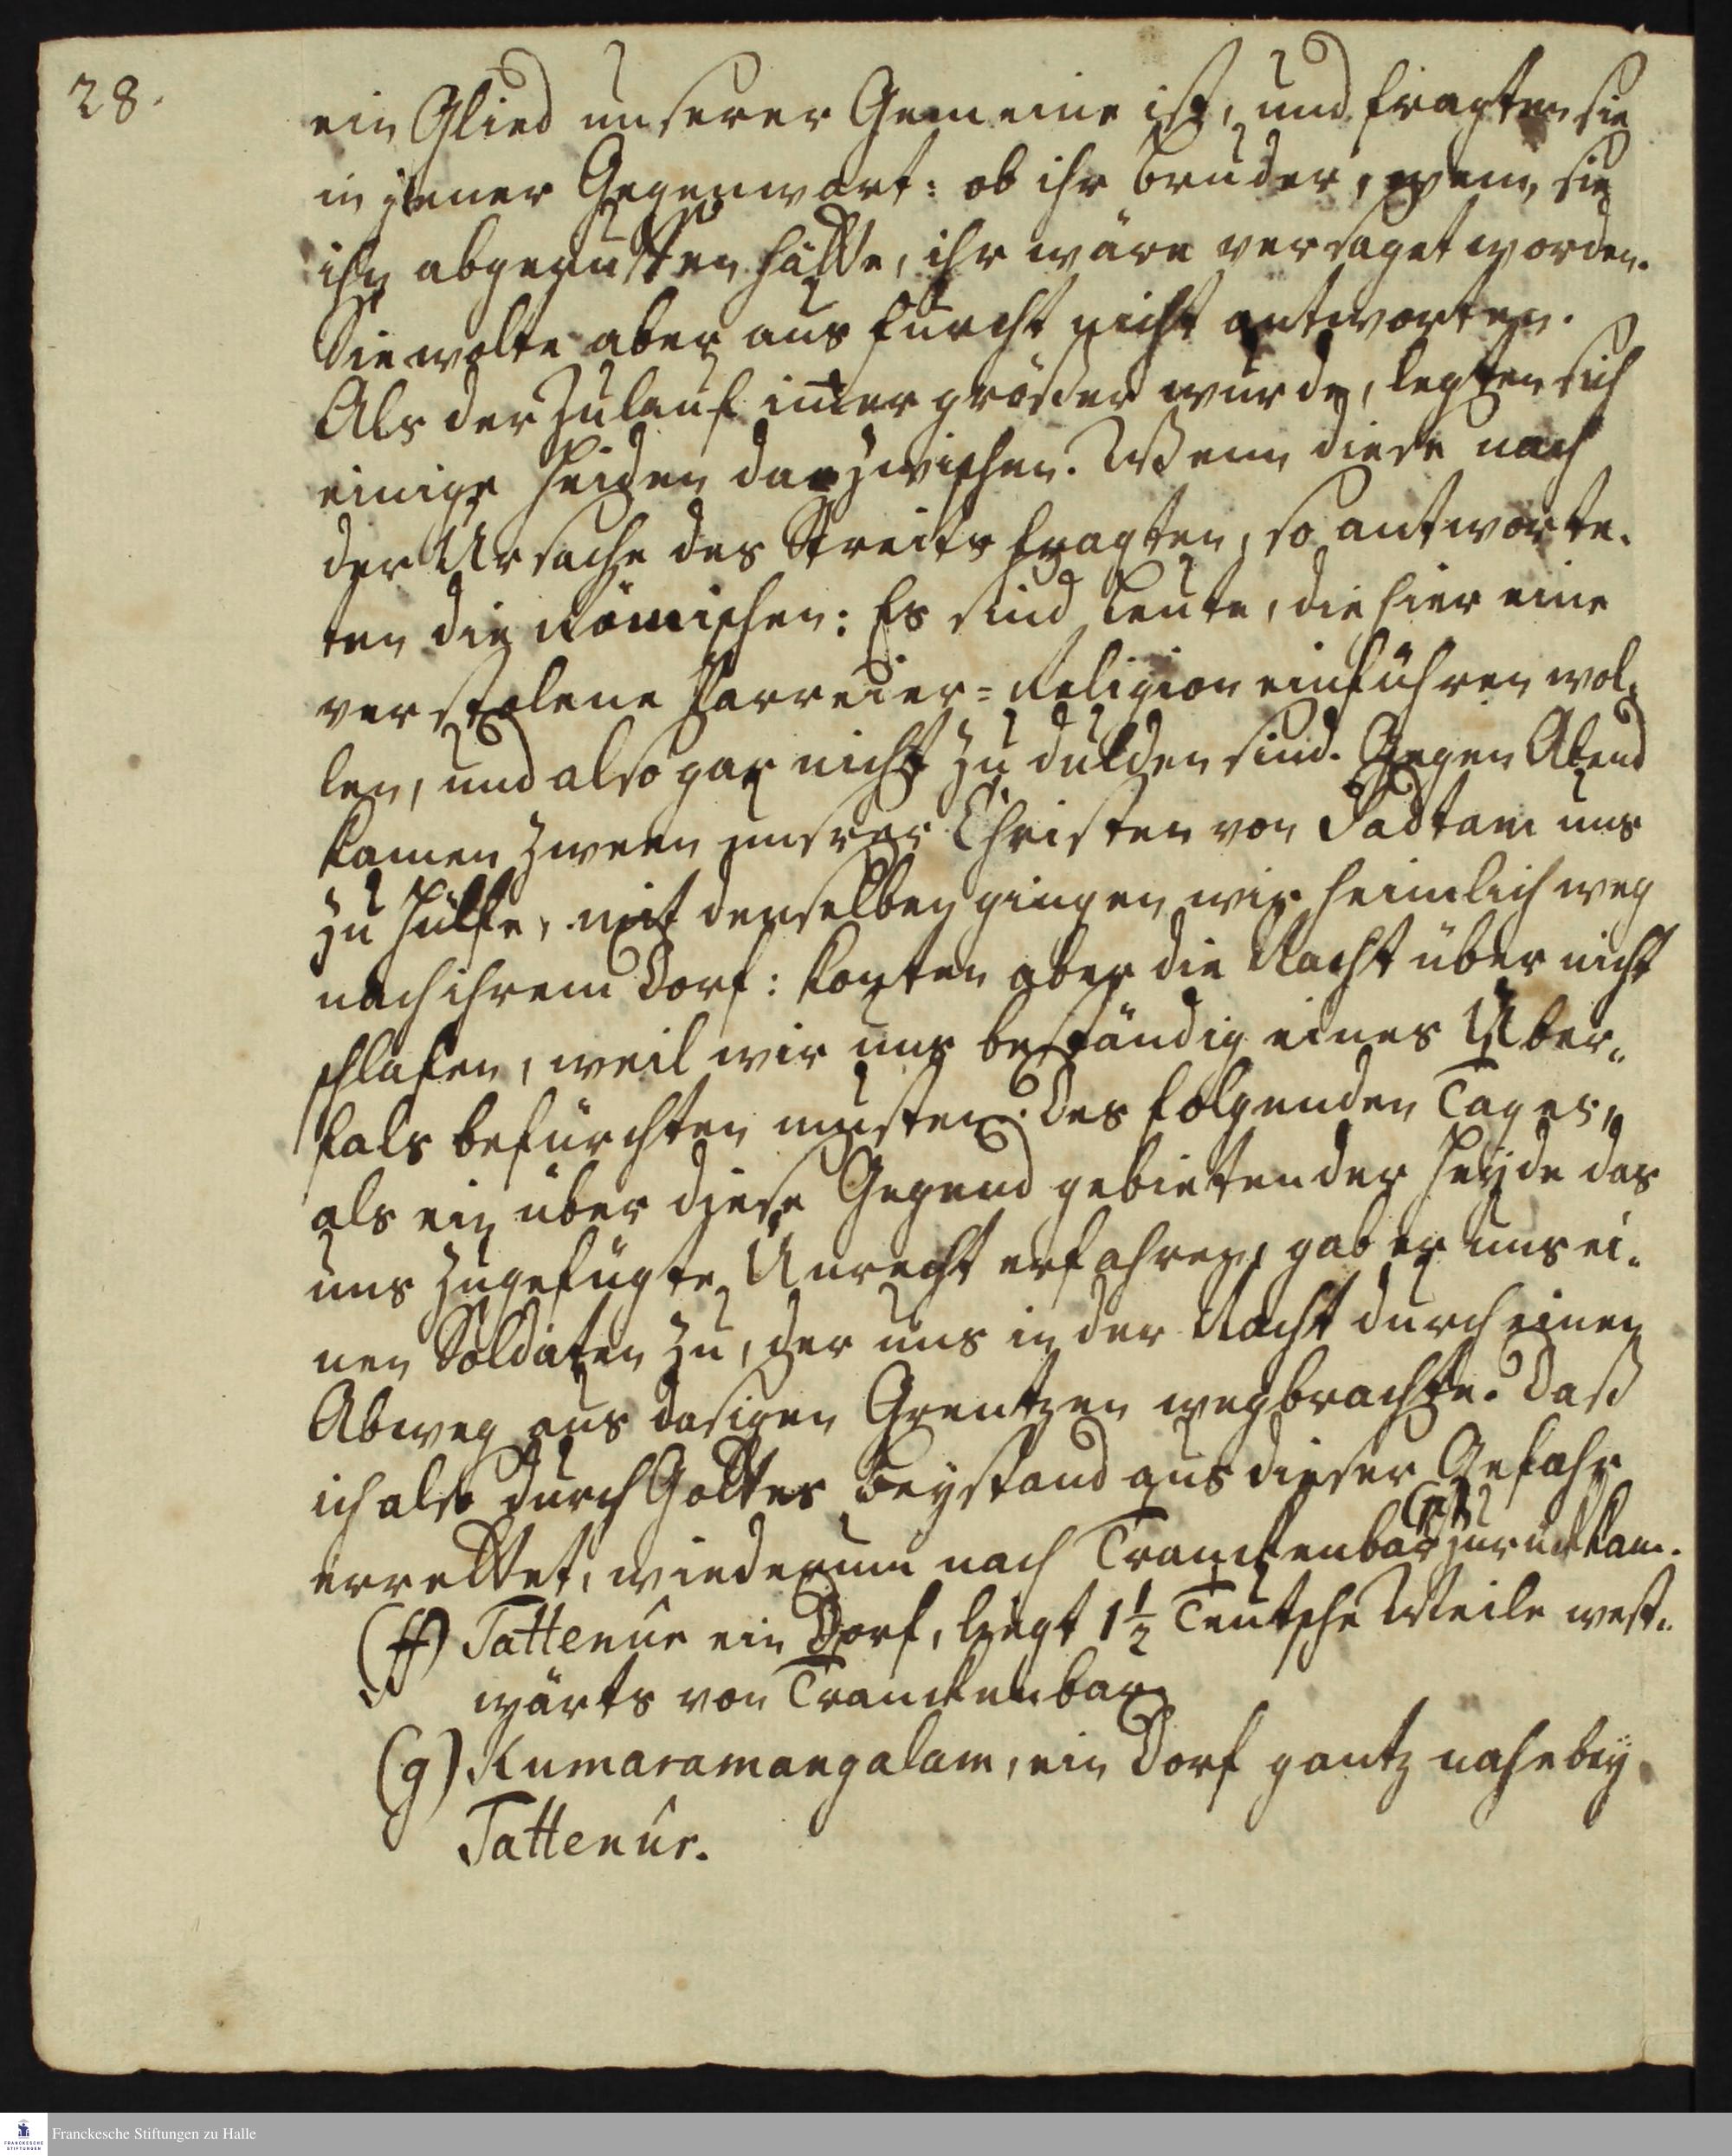 28.
ein Glied unserer Gemeine ist, und fragten sie
in jener Gegenwart: ob ihr Bruder, wenn sie
ihn abgeruffen hätte, ihr wäre versaget worden.
Sie wolte aber aus Furcht nicht antworten.
Als der Zulauf im̄er größer wurde, legten sich
einige Heiden darzwischen. Wenn diese nach
der Ursache des Streits fragten, so antworte-
ten die Römischen: Es sind Leute, die hier eine
verstolene Parreier-Religion einführen wol-
len, und also gar nicht zu dulden sind. Gegen Abend
kamen zween unsrer Christen von Padtam uns
zu Hülffe, mit denselben gingen wir heimlich weg
nach ihrem Dorf: konten aber die Nacht über nicht
schlafen, weil wir uns beständig eines Uber-
fals befürchten musten. Des folgenden Tages,
als ein über diese Gegend gebietender Heyde das
uns zugefügte Unrecht erfahren, gab er uns ei-
nen Soldaten zu, der uns in der Nacht durch einen
Abweg aus dasigen Grentzen wegbrachte. Daß
ich also durch Gottes Beystand aus dieser Gefahr
errettet, wiederum nach Tranckenbar zurück kam.
(ff) Tattenûr ein Dorf, liegt 1½ Teutsche Meile west-
wärts von Tranckenbar.
(g) Kumaramangalam, ein Dorf gantz nahe bey
Tattenûr.
FRANCKESCHE
STIFTUNGEN
Franckesche Stiftungen zu Halle